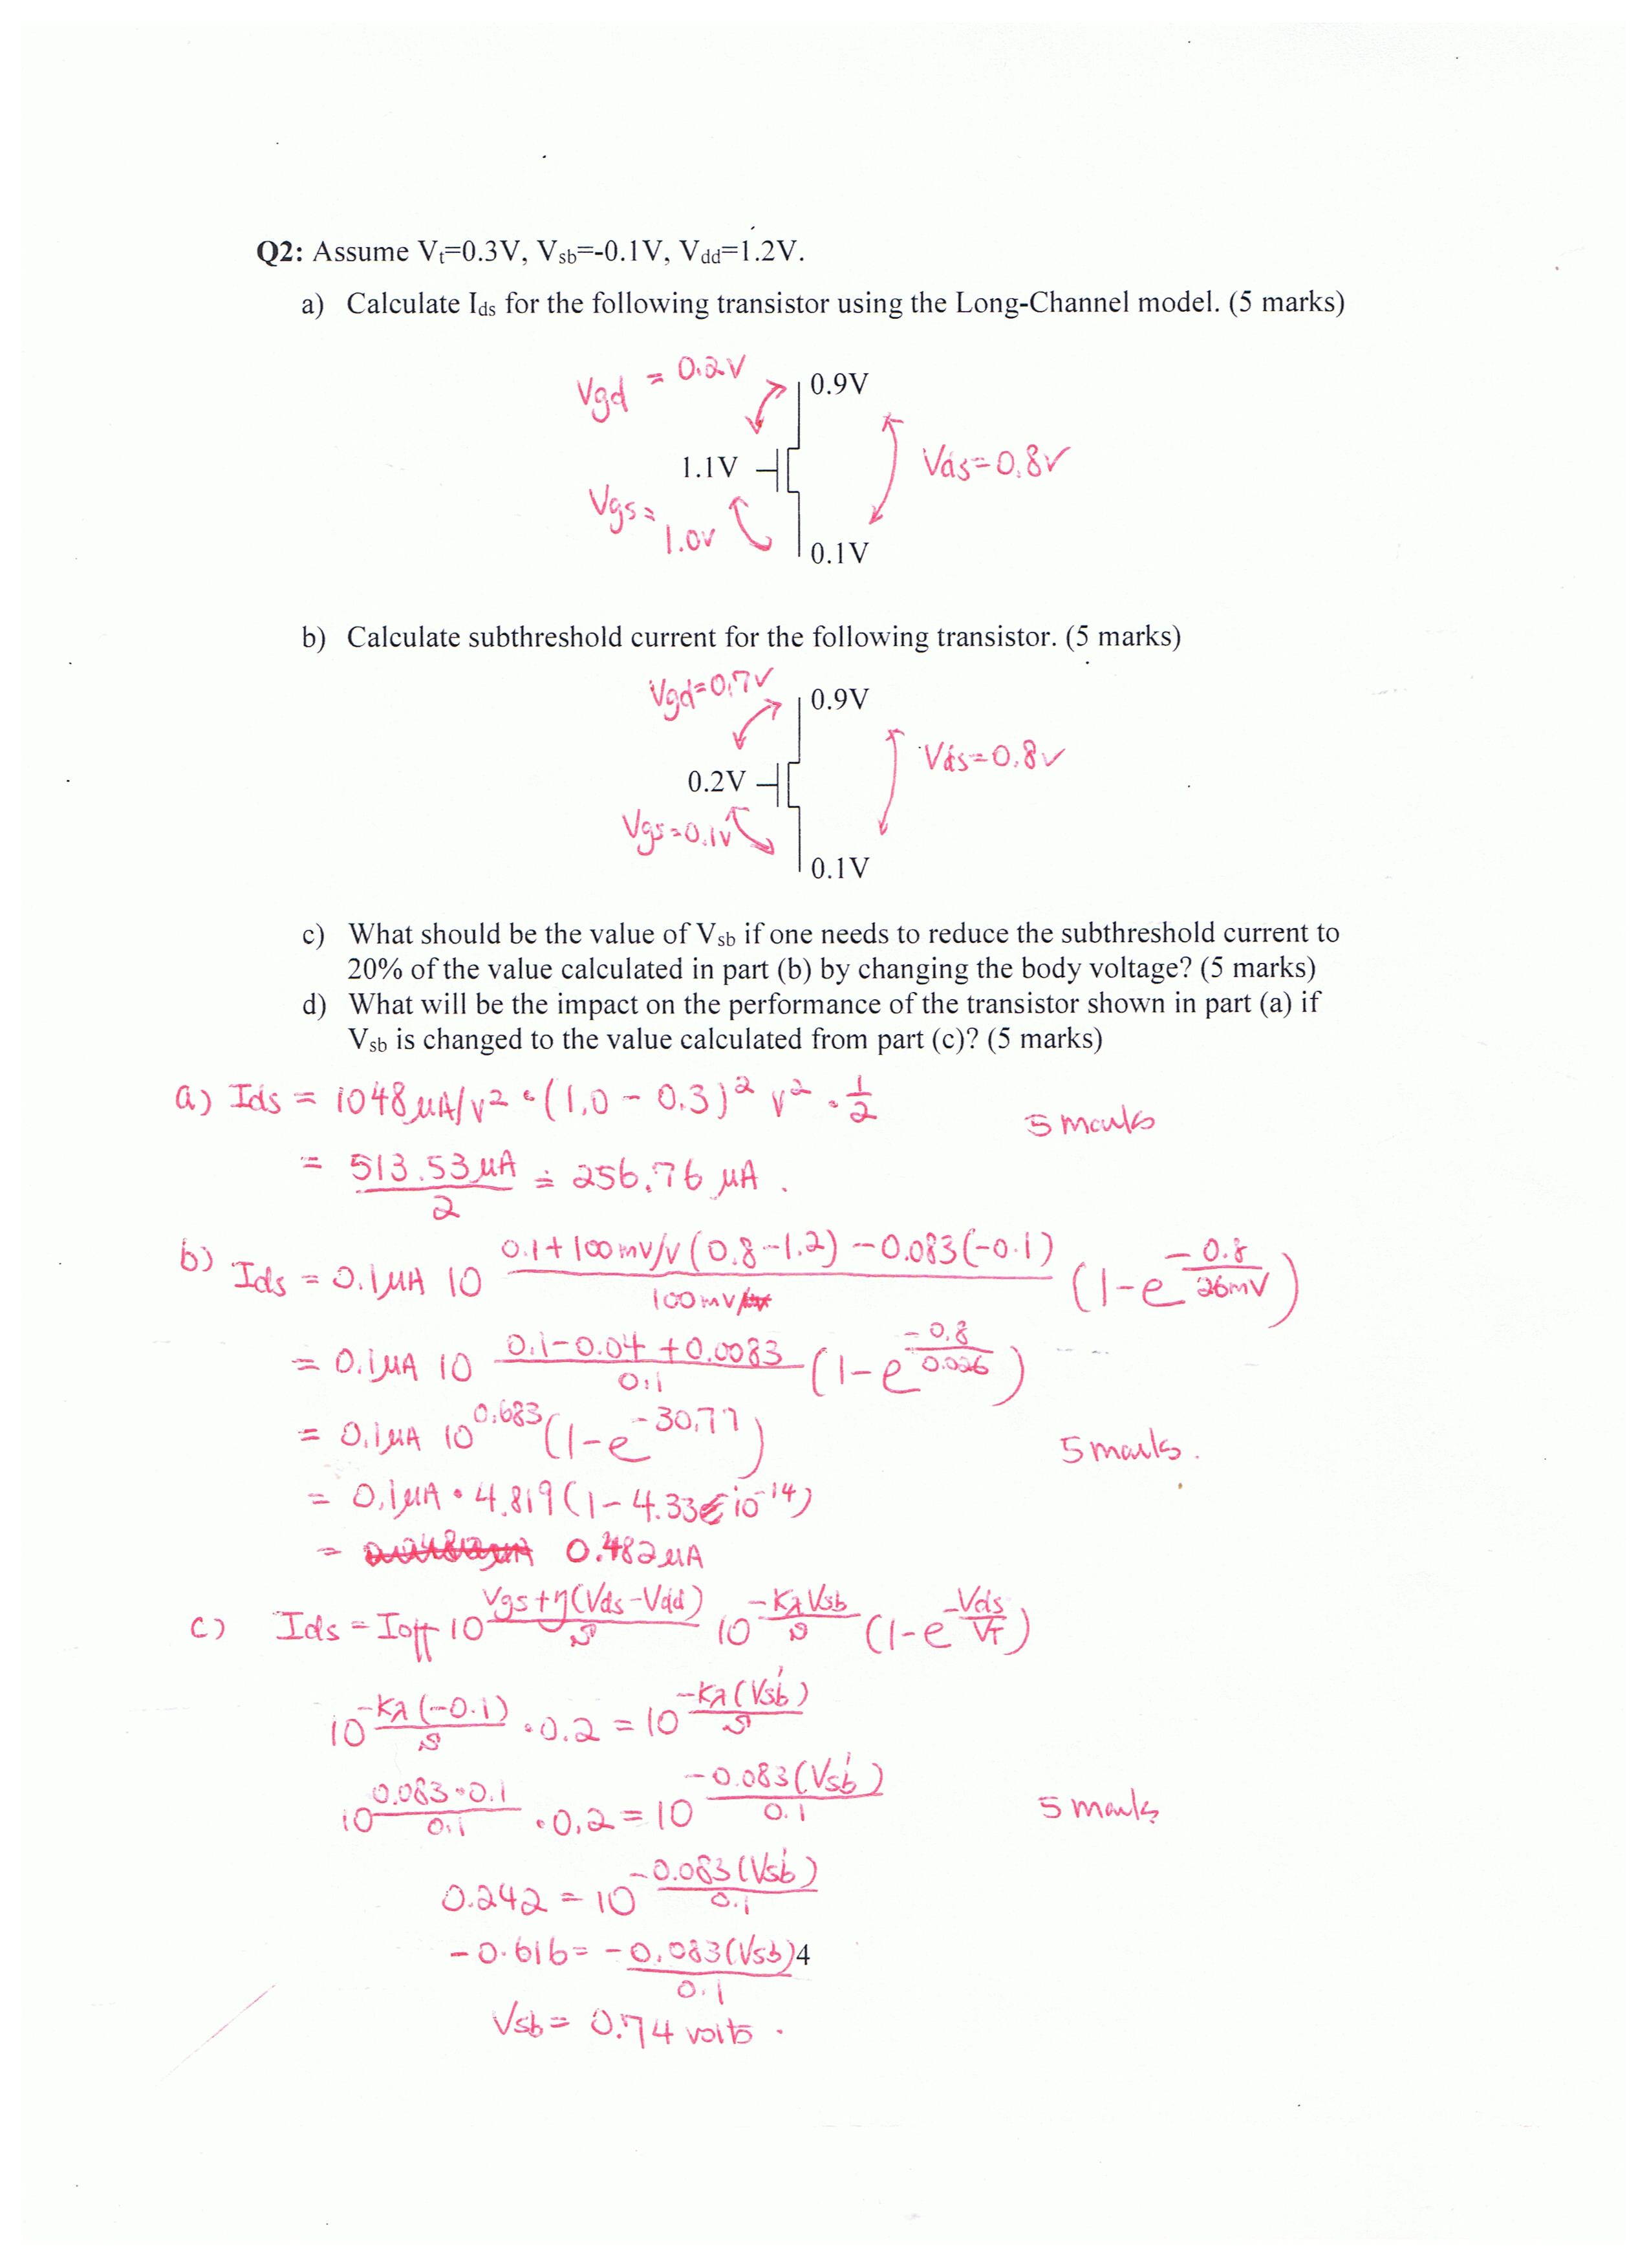 Q2: Assume Vt=0.3V, Vsb=-0.1V, Vdd=1.2V.
a) Calculate Ids for the following transistor using the Long-Channel model. (5 marks)
Vgd = 0.2V
0.9V
1.1V
Vds=0.8V
Vgs=
1.0V
0.1V
b) Calculate subthreshold current for the following transistor. (5 marks)
Vgd=0.7V
0.9V
0.2V
Vds=0.8V
Vgs=0.1V
0.1V
c) What should be the value of Vsb if one needs to reduce the subthreshold current to
20% of the value calculated in part (b) by changing the body voltage? (5 marks)
d) What will be the impact on the performance of the transistor shown in part (a) if
Vsb is changed to the value calculated from part (c)? (5 marks)
a) Ids = 1048 μA/V² • (1.0 - 0.3)² V² • 1/2
5 marks
= 513.53 μA / 2 = 256.76 μA.
b) Ids = 0.1μA 10^((0.1+100mV/V(0.8-1.2)-0.083(-0.1))/100mV) (1-e^(-0.8/26mV))
= 0.1μA 10^((0.1-0.04+0.0083)/0.1) (1-e^(-0.8/0.026))
= 0.1μA 10^0.683 (1-e^-30.77)
5 marks.
= 0.1μA • 4.819 (1-4.33 10^-14)
= 0.482μA
c) Ids = Ioff 10^((Vgs+η(Vds-Vdd))/S) 10^(-KλVsb/S) (1-e^(-Vds/VT))
10^(-Kλ(-0.1)/S) • 0.2 = 10^(-Kλ(Vsb')/S)
10^(0.083•0.1/0.1) • 0.2 = 10^(-0.083(Vsb')/0.1)
5 marks
0.242 = 10^(-0.083(Vsb')/0.1)
-0.616 = -0.083(Vsb)/0.1
4
Vsb = 0.74 volts.